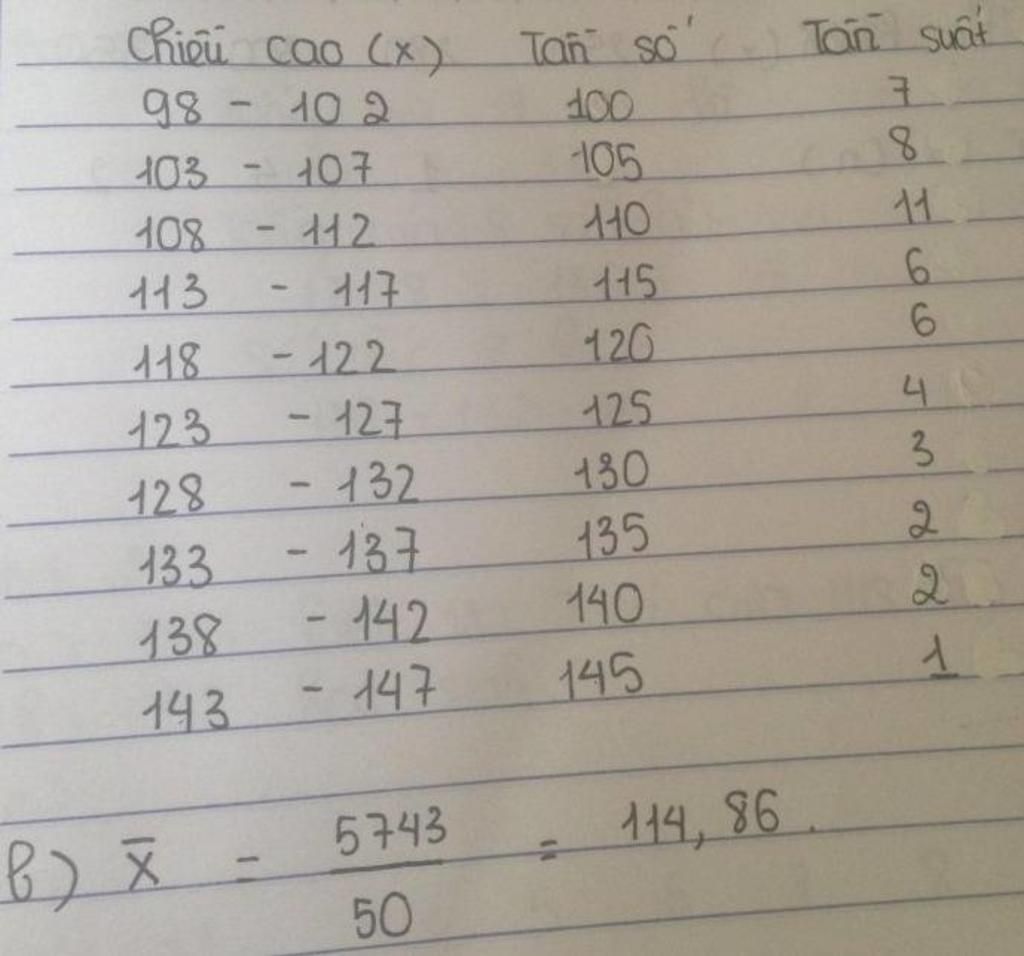 Chiều cao (x) Tần số Tần suất
98 - 102 100 7
103 - 107 105 8
108 - 112 110 11
113 - 117 115 6
118 - 122 120 6
123 - 127 125 4
128 - 132 130 3
133 - 137 135 2
138 - 142 140 2
143 - 147 145 1
b) X̄ = 5743/50 = 114,86.